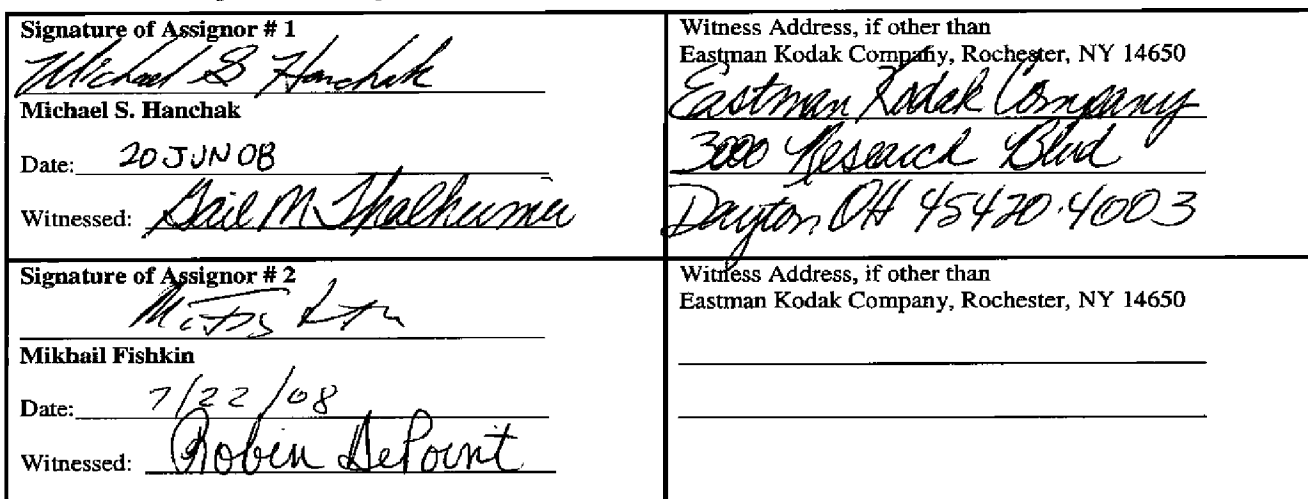 Signature of Assignor # 1
Michael S Hanchak
Michael S. Hanchak
Date: 20 JUN 08
Witnessed: Gail M. Thalheimer
Witness Address, if other than
Eastman Kodak Company, Rochester, NY 14650
Eastman Kodak Company
3000 Research Blvd
Dayton, OH 45420-4003
Signature of Assignor # 2
Mikhail Fishkin
Date: 7/22/08
Witnessed: Robin DePoint
Witness Address, if other than
Eastman Kodak Company, Rochester, NY 14650